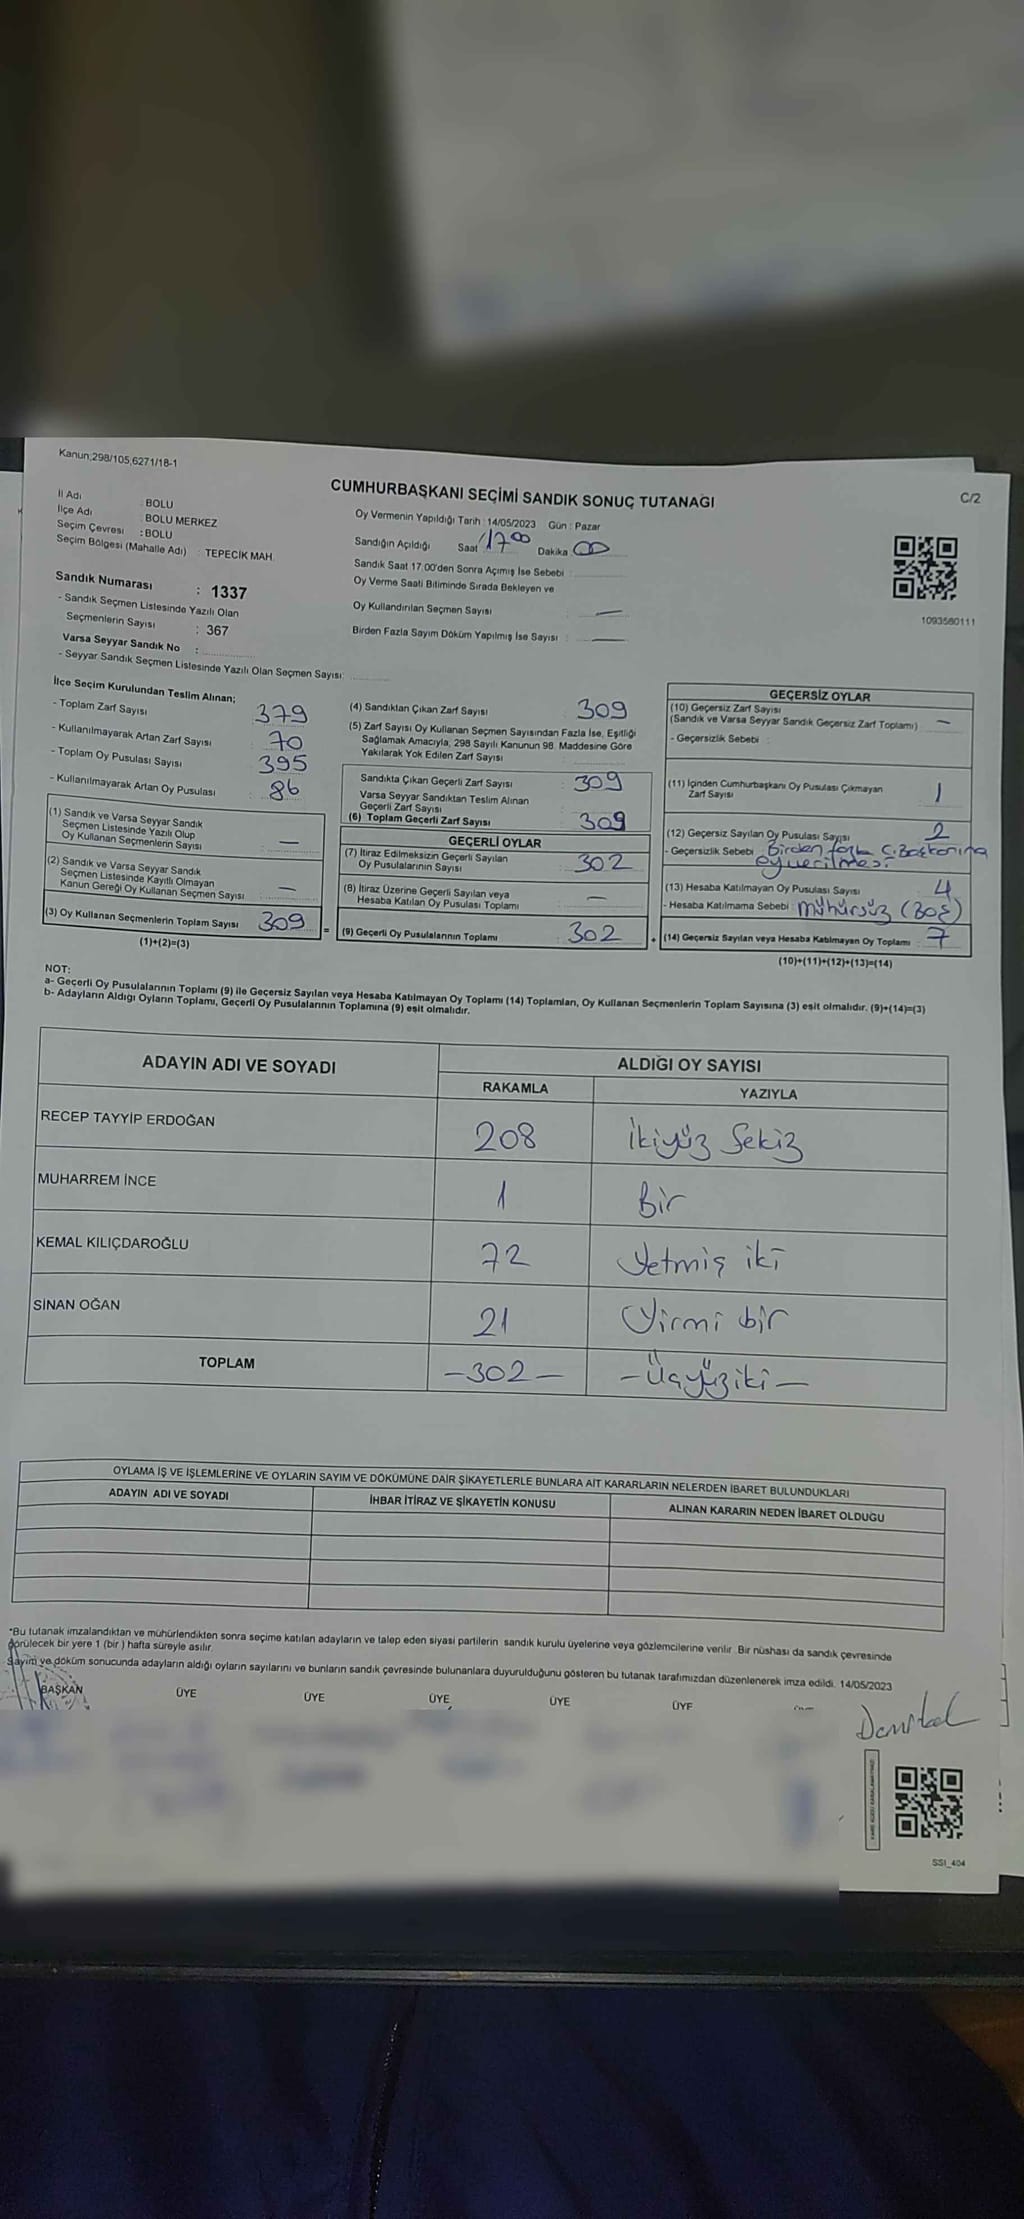 Kanun;298/105,6271/18-1
CUMHURBAŞKANI SEÇİMİ SANDIK SONUÇ TUTANAĞI
C/2
İl Adı : BOLU
İlçe Adı : BOLU MERKEZ
Seçim Çevresi : BOLU
Seçim Bölgesi (Mahalle Adı) : TEPECİK MAH.
Sandık Numarası : 1337
- Sandık Seçmen Listesinde Yazılı Olan
Seçmenlerin Sayısı : 367
Varsa Seyyar Sandık No :
- Seyyar Sandık Seçmen Listesinde Yazılı Olan Seçmen Sayısı:
Oy Vermenin Yapıldığı Tarih : 14/05/2023 Gün : Pazar
Sandığın Açıldığı Saat 17 00 Dakika 00
Sandık Saat 17.00'den Sonra Açımış İse Sebebi :
Oy Verme Saati Bitiminde Sırada Bekleyen ve
Oy Kullandırılan Seçmen Sayısı : —
Birden Fazla Sayım Döküm Yapılmış İse Sayısı : —
1093560111
İlçe Seçim Kurulundan Teslim Alınan;
- Toplam Zarf Sayısı : 379
- Kullanılmayarak Artan Zarf Sayısı : 70
- Toplam Oy Pusulası Sayısı : 395
- Kullanılmayarak Artan Oy Pusulası : 86
(1) Sandık ve Varsa Seyyar Sandık
Seçmen Listesinde Yazılı Olup
Oy Kullanan Seçmenlerin Sayısı : —
(2) Sandık ve Varsa Seyyar Sandık
Seçmen Listesinde Kayıtlı Olmayan
Kanun Gereği Oy Kullanan Seçmen Sayısı : —
(3) Oy Kullanan Seçmenlerin Toplam Sayısı : 309 =
(1)+(2)=(3)
(4) Sandıktan Çıkan Zarf Sayısı : 309
(5) Zarf Sayısı Oy Kullanan Seçmen Sayısından Fazla İse, Eşitliği
Sağlamak Amacıyla, 298 Sayılı Kanunun 98. Maddesine Göre
Yakılarak Yok Edilen Zarf Sayısı :
Sandıkta Çıkan Geçerli Zarf Sayısı : 309
Varsa Seyyar Sandıktan Teslim Alınan
Geçerli Zarf Sayısı :
(6) Toplam Geçerli Zarf Sayısı : 309
GEÇERLİ OYLAR
(7) İtiraz Edilmeksizin Geçerli Sayılan
Oy Pusulalarının Sayısı : 302
(8) İtiraz Üzerine Geçerli Sayılan veya
Hesaba Katılan Oy Pusulası Toplamı : —
(9) Geçerli Oy Pusulalarının Toplamı : 302 +
GEÇERSİZ OYLAR
(10) Geçersiz Zarf Sayısı
(Sandık ve Varsa Seyyar Sandık Geçersiz Zarf Toplamı) : —
- Geçersizlik Sebebi :
(11) İçinden Cumhurbaşkanı Oy Pusulası Çıkmayan
Zarf Sayısı : 1
(12) Geçersiz Sayılan Oy Pusulası Sayısı : 2
- Geçersizlik Sebebi : Birden fazla C.Başkanına
oy verilmesi
(13) Hesaba Katılmayan Oy Pusulası Sayısı : 4
- Hesaba Katılmama Sebebi : mühürsüz (Boş)
(14) Geçersiz Sayılan veya Hesaba Katılmayan Oy Toplamı : 7
(10)+(11)+(12)+(13)=(14)
NOT:
a- Geçerli Oy Pusulalarının Toplamı (9) ile Geçersiz Sayılan veya Hesaba Katılmayan Oy Toplamı (14) Toplamları, Oy Kullanan Seçmenlerin Toplam Sayısına (3) eşit olmalıdır. (9)+(14)=(3)
b- Adayların Aldığı Oyların Toplamı, Geçerli Oy Pusulalarının Toplamına (9) eşit olmalıdır.
ADAYIN ADI VE SOYADI
ALDIĞI OY SAYISI
RAKAMLA YAZIYLA
RECEP TAYYİP ERDOĞAN 208 İkiyüz Sekiz
MUHARREM İNCE 1 Bir
KEMAL KILIÇDAROĞLU 72 Yetmiş iki
SİNAN OĞAN 21 Yirmi bir
TOPLAM -302- -Üçyüziki-
OYLAMA İŞ VE İŞLEMLERİNE VE OYLARIN SAYIM VE DÖKÜMÜNE DAİR ŞİKAYETLERLE BUNLARA AİT KARARLARIN NELERDEN İBARET BULUNDUKLARI
ADAYIN ADI VE SOYADI İHBAR İTİRAZ VE ŞİKAYETİN KONUSU ALINAN KARARIN NEDEN İBARET OLDUĞU
*Bu tutanak imzalandıktan ve mühürlendikten sonra seçime katılan adayların ve talep eden siyasi partilerin sandık kurulu üyelerine veya gözlemcilerine verilir. Bir nüshası da sandık çevresinde
görülecek bir yere 1 (bir ) hafta süreyle asılır.
Sayım ve döküm sonucunda adayların aldığı oyların sayılarını ve bunların sandık çevresinde bulunanlara duyurulduğunu gösteren bu tutanak tarafımızdan düzenlenerek imza edildi. 14/05/2023
BAŞKAN ÜYE ÜYE ÜYE ÜYE ÜYE
SSI_404